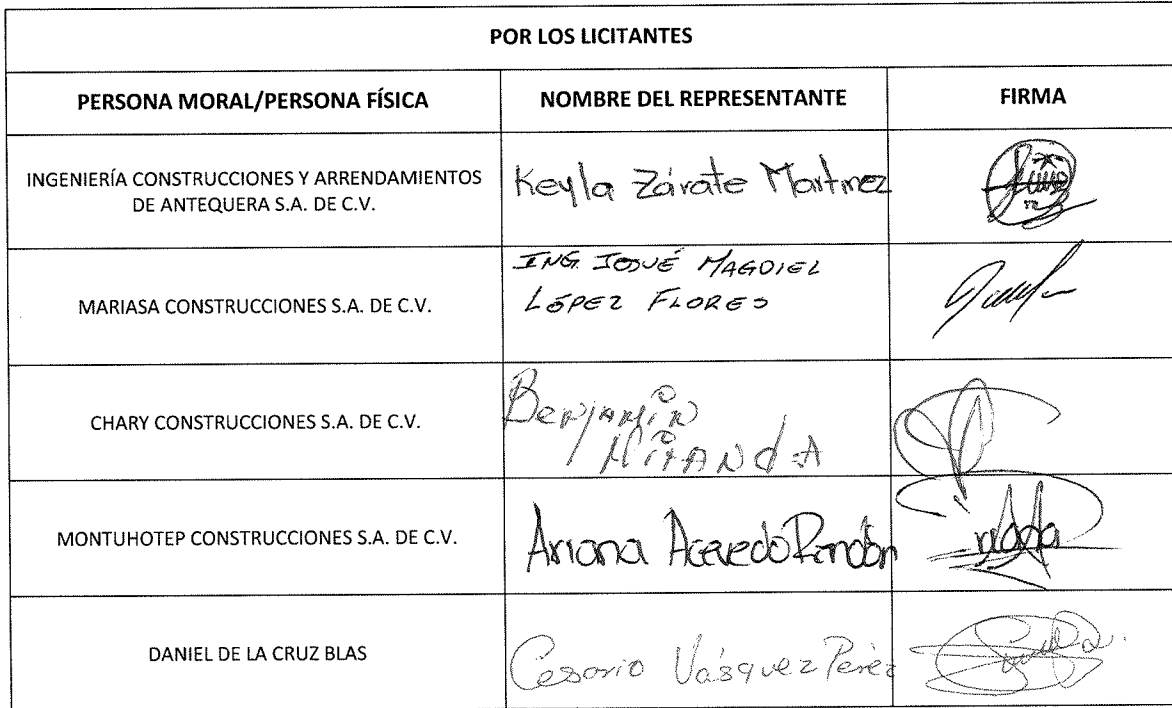 POR LOS LICITANTES
PERSONA MORAL/PERSONA FÍSICA
NOMBRE DEL REPRESENTANTE
FIRMA
INGENIERÍA CONSTRUCCIONES Y ARRENDAMIENTOS
DE ANTEQUERA S.A. DE C.V.
Keyla Zárate Martinez
MARIASA CONSTRUCCIONES S.A. DE C.V.
ING. JOSUÉ MAGDIEL
LÓPEZ FLORES
CHARY CONSTRUCCIONES S.A. DE C.V.
Benjamín
Miranda
MONTUHOTEP CONSTRUCCIONES S.A. DE C.V.
Ariana Acevedo Rendón
DANIEL DE LA CRUZ BLAS
Cesario Vásquez Pérez